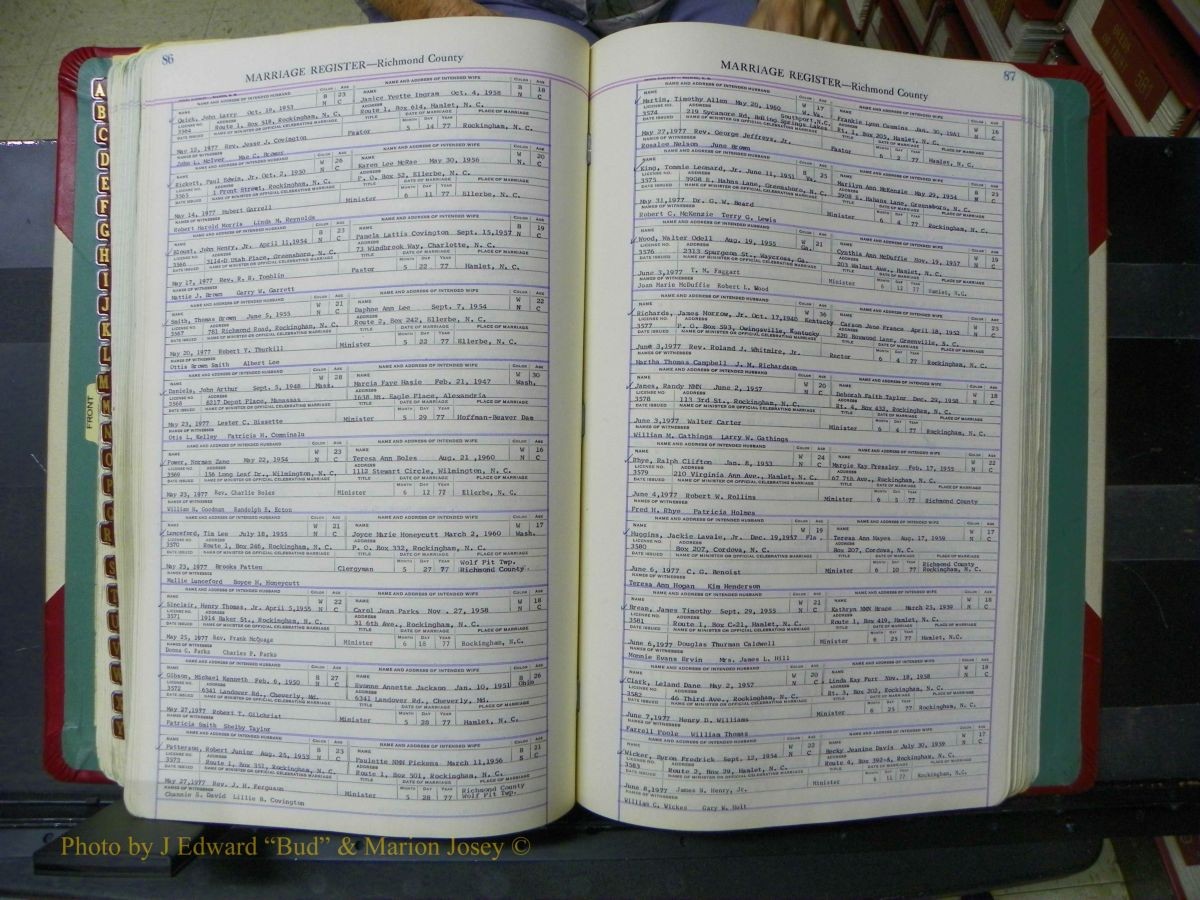 86
MARRIAGE REGISTER—Richmond County
NAME AND ADDRESS OF INTENDED HUSBAND NAME AND ADDRESS OF INTENDED WIFE
Quick, John Larry Oct. 10, 1953 B 23 N C Janice Yvette Ingram Oct. 4, 1958 B 18 N C
3564 Route 1, Box 518, Rockingham, N. C. Route 1, Box 614, Hamlet, N. C.
May 12, 1977 Rev. Jesse J. Covington Pastor 5 14 77 Rockingham, N. C.
John L. McIver Mae C. Brower
Rickett, Paul Edwin, Jr. Oct. 2, 1950 W 26 N C Karen Lee McRae May 30, 1956 W 20 N C
3565 1 Front Street, Rockingham, N. C. P. O. Box 52, Ellerbe, N. C.
May 14, 1977 Hubert Garrell Minister 6 11 77 Ellerbe, N. C.
Robert Harold Morris Linda M. Reynolds
Blount, John Henry, Jr. April 11,1954 B 23 N C Pamela Lattis Covington Sept. 15,1957 B 19 N C
3566 3114-D Utah Place, Greensboro, N. C. 73 Windbrook Way, Charlotte, N. C.
May 17, 1977 Rev. R. R. Tomblin Pastor 5 22 77 Hamlet, N. C.
Mattie J. Brown Garry W. Garrett
Smith, Thomas Brown June 5, 1955 W 21 N C Daphne Ann Lee Sept. 7, 1954 W 22 N C
3567 781 Richmond Road, Rockingham, N. C. Route 2, Box 242, Ellerbe, N. C.
May 20, 1977 Robert Y. Thurkill Minister 5 22 77 Ellerbe, N. C.
Ottis Brown Smith Albert Lee
Daniels, John Arthur Sept. 5, 1948 W 28 Mass. Marcia Faye Hasie Feb. 21, 1947 W 30 Wash.
3568 8217 Depot Place, Manassas 1638 Mt. Eagle Place, Alexandria
May 23, 1977 Lester C. Bissette Minister 5 29 77 Hoffman-Beaver Dam
Otis L. Kelley Patricia H.
Power, Norman Zane May 22, 1954 W 23 N C Teresa Ann Boles Aug. 21, 1960 W 16 N C
3569 256 Long Leaf Dr., Wilmington, N. C. 1112 Stewart Circle, Wilmington, N. C.
May 23, 1977 Rev. Charlie Boles Minister 6 12 77 Ellerbe, N. C.
William S. Goodman Randolph E. Ecton
Lunceford, Tim Lee July 18, 1955 W 21 N C Joyce Marie Honeycutt March 2, 1960 W 17 Wash.
3570 Route 1, Box 246, Rockingham, N. C. P. O. Box 332, Rockingham, N. C.
May 23, 1977 Brooks Patten Clergyman 5 27 77 Wolf Pit Twp. Richmond County
Mallie Lunceford Boyce H. Honeycutt
Sinclair, Henry Thomas, Jr. April 5,1955 W 22 N C Carol Jean Parks Nov. 27, 1958 W 18 N C
3571 1914 Baker St., Rockingham, N. C. 31 6th Ave., Rockingham, N. C.
May 25, 1977 Rev. Frank McQuage Minister 6 18 77 Rockingham, N.C.
Donna C. Parks Charles P. Parks
Gibson, Michael Kenneth Feb. 6, 1950 B 27 N C Evonne Annette Jackson Jan. 10, 1951 B 26 Ohio
3572 6341 Landover Rd., Cheverly, Md. 6341 Landover Rd., Cheverly, Md.
May 27,1977 Robert T. Gilchrist Minister 5 28 77 Hamlet, N. C.
Patricia Smith Shelby Taylor
Patterson, Robert Junior Aug. 25, 1953 B 23 N C Paulette NMN Pickens March 11,1956 B 21 S C
3573 Route 1, Box 351, Rockingham, N. C. Route 1, Box 501, Rockingham, N. C.
May 27,1977 Rev. J. H. Ferguson Minister 5 28 77 Richmond County Wolf Pit Twp.
Channie S. David Lillie B. Covington
87
MARRIAGE REGISTER—Richmond County
NAME AND ADDRESS OF INTENDED HUSBAND NAME AND ADDRESS OF INTENDED WIFE
Martin, Timothy Allen May 20, 1960 W 17 W. Va. Frankie Lynn Cummins Jan. 30, 1961 W 16 N C
3574 219 Sycamore Rd, Boiling Springs Lakes Southport,N.C. Rt. 1, Box 205, Hamlet, N. C.
May 27,1977 Rev. George Jeffreys, Jr. Pastor 6 2 77 Hamlet, N. C.
Rosalee Nelson June Brown
King, Tommie Leonard, Jr. June 11, 1951 B 25 N C Marilyn Ann McKenzie May 29, 1954 B 23 N C
3575 3908 E. Hahns Lane, Greensboro, N. C. 3908 E. Hahans Lane, Greensboro, N. C.
May 31,1977 Dr. G. W. Beard Minister 6 4 77 Rockingham, N. C.
Robert C. McKenzie Terry G. Lewis
Wood, Walter Odell Aug. 19, 1955 W 21 Ga. Cynthia Ann McDuffie Nov. 19, 1957 W 19 N C
3576 2313 Spurgeon St., Waycross, Ga. 203 Walnut Ave., Hamlet, N. C.
June 3,1977 T. M. Faggart Minister 6 12 77 Hamlet, N.C.
Joan Marie McDuffie Robert L. Wood
Richards, James Morrow, Jr. Oct. 17,1940 W 36 Kentucky Carson Jane France April 18, 1952 W 25 N C
3577 P. O. Box 593, Owingsville, Kentucky 220 Boxwood Lane, Greenville, N. C.
June 3,1977 Rev. Roland J. Whitmire, Jr. Rector 6 4 77 Rockingham, N. C.
Martha Thomas Campbell J. M. Richardson
Janes, Randy NMN June 2, 1957 W 20 N C Deborah Faith Taylor Dec. 29, 1958 W 18 N C
3578 113 3rd St., Rockingham, N. C. Rt. 4, Box 432, Rockingham, N. C.
June 3,1977 Walter Carter Minister 6 4 77 Rockingham, N. C.
William M. Gathings Larry W. Gathings
Rhye, Ralph Clifton Jan. 8, 1953 W 24 N C Margie Kay Pressley Feb. 17, 1955 W 22 N C
3579 210 Virginia Ann Ave., Hamlet, N. C. 67 7th Ave., Rockingham, N. C.
June 4,1977 Robert W. Rollins Minister 6 5 77 Richmond County
Fred H. Rhye Patricia Holmes
Huggins, Jackie Lavale, Jr. Dec. 19,1957 W 19 Fla. Teresa Ann Hayes Aug. 17, 1959 W 17 N C
3580 Box 207, Cordova, N. C. Box 207, Cordova, N. C.
June 6, 1977 C. G. Benoist Minister 6 10 77 Richmond County Rockingham, N.C.
Teresa Ann Hogan Kim Henderson
Bream, James Timothy Sept. 29, 1955 W 21 N C Kathryn NMN Bruce March 25, 1959 W 18 N C
3581 Route 1, Box C-21, Hamlet, N. C. Route 1, Box 419, Hamlet, N. C.
June 6,1977 Douglas Thurman Caldwell Minister 6 25 77 Hamlet, N.C.
Monnie Evans Ervin Mrs. James L. Hill
Clark, Leland Dane May 2, 1957 W 20 N C Linda Kay Furr Nov. 18, 1958 W 18 N C
3582 46 Third Ave., Rockingham, N. C. Rt. 3, Box 202, Rockingham, N. C.
June 7,1977 Henry D. Williams Minister 6 25 77 Rockingham, N. C.
Farrell Poole William Thomas
Wicker, Byron Fredrick Sept. 12, 1954 W 22 N C Becky Jeanine Davis July 30, 1959 W 17 N C
3583 Route 2, Box 39, Hamlet, N. C. Route 4, Box 392-6, Rockingham, N. C.
June 8,1977 James B. Henry, Jr. Minister 6 11 77 Rockingham, N.C.
William C. Wicker Gary W. Holt
A
B
C
D
E
F
G
H
I
J
K
L
M
FRONT
Photo by J Edward “Bud” & Marion Josey ©